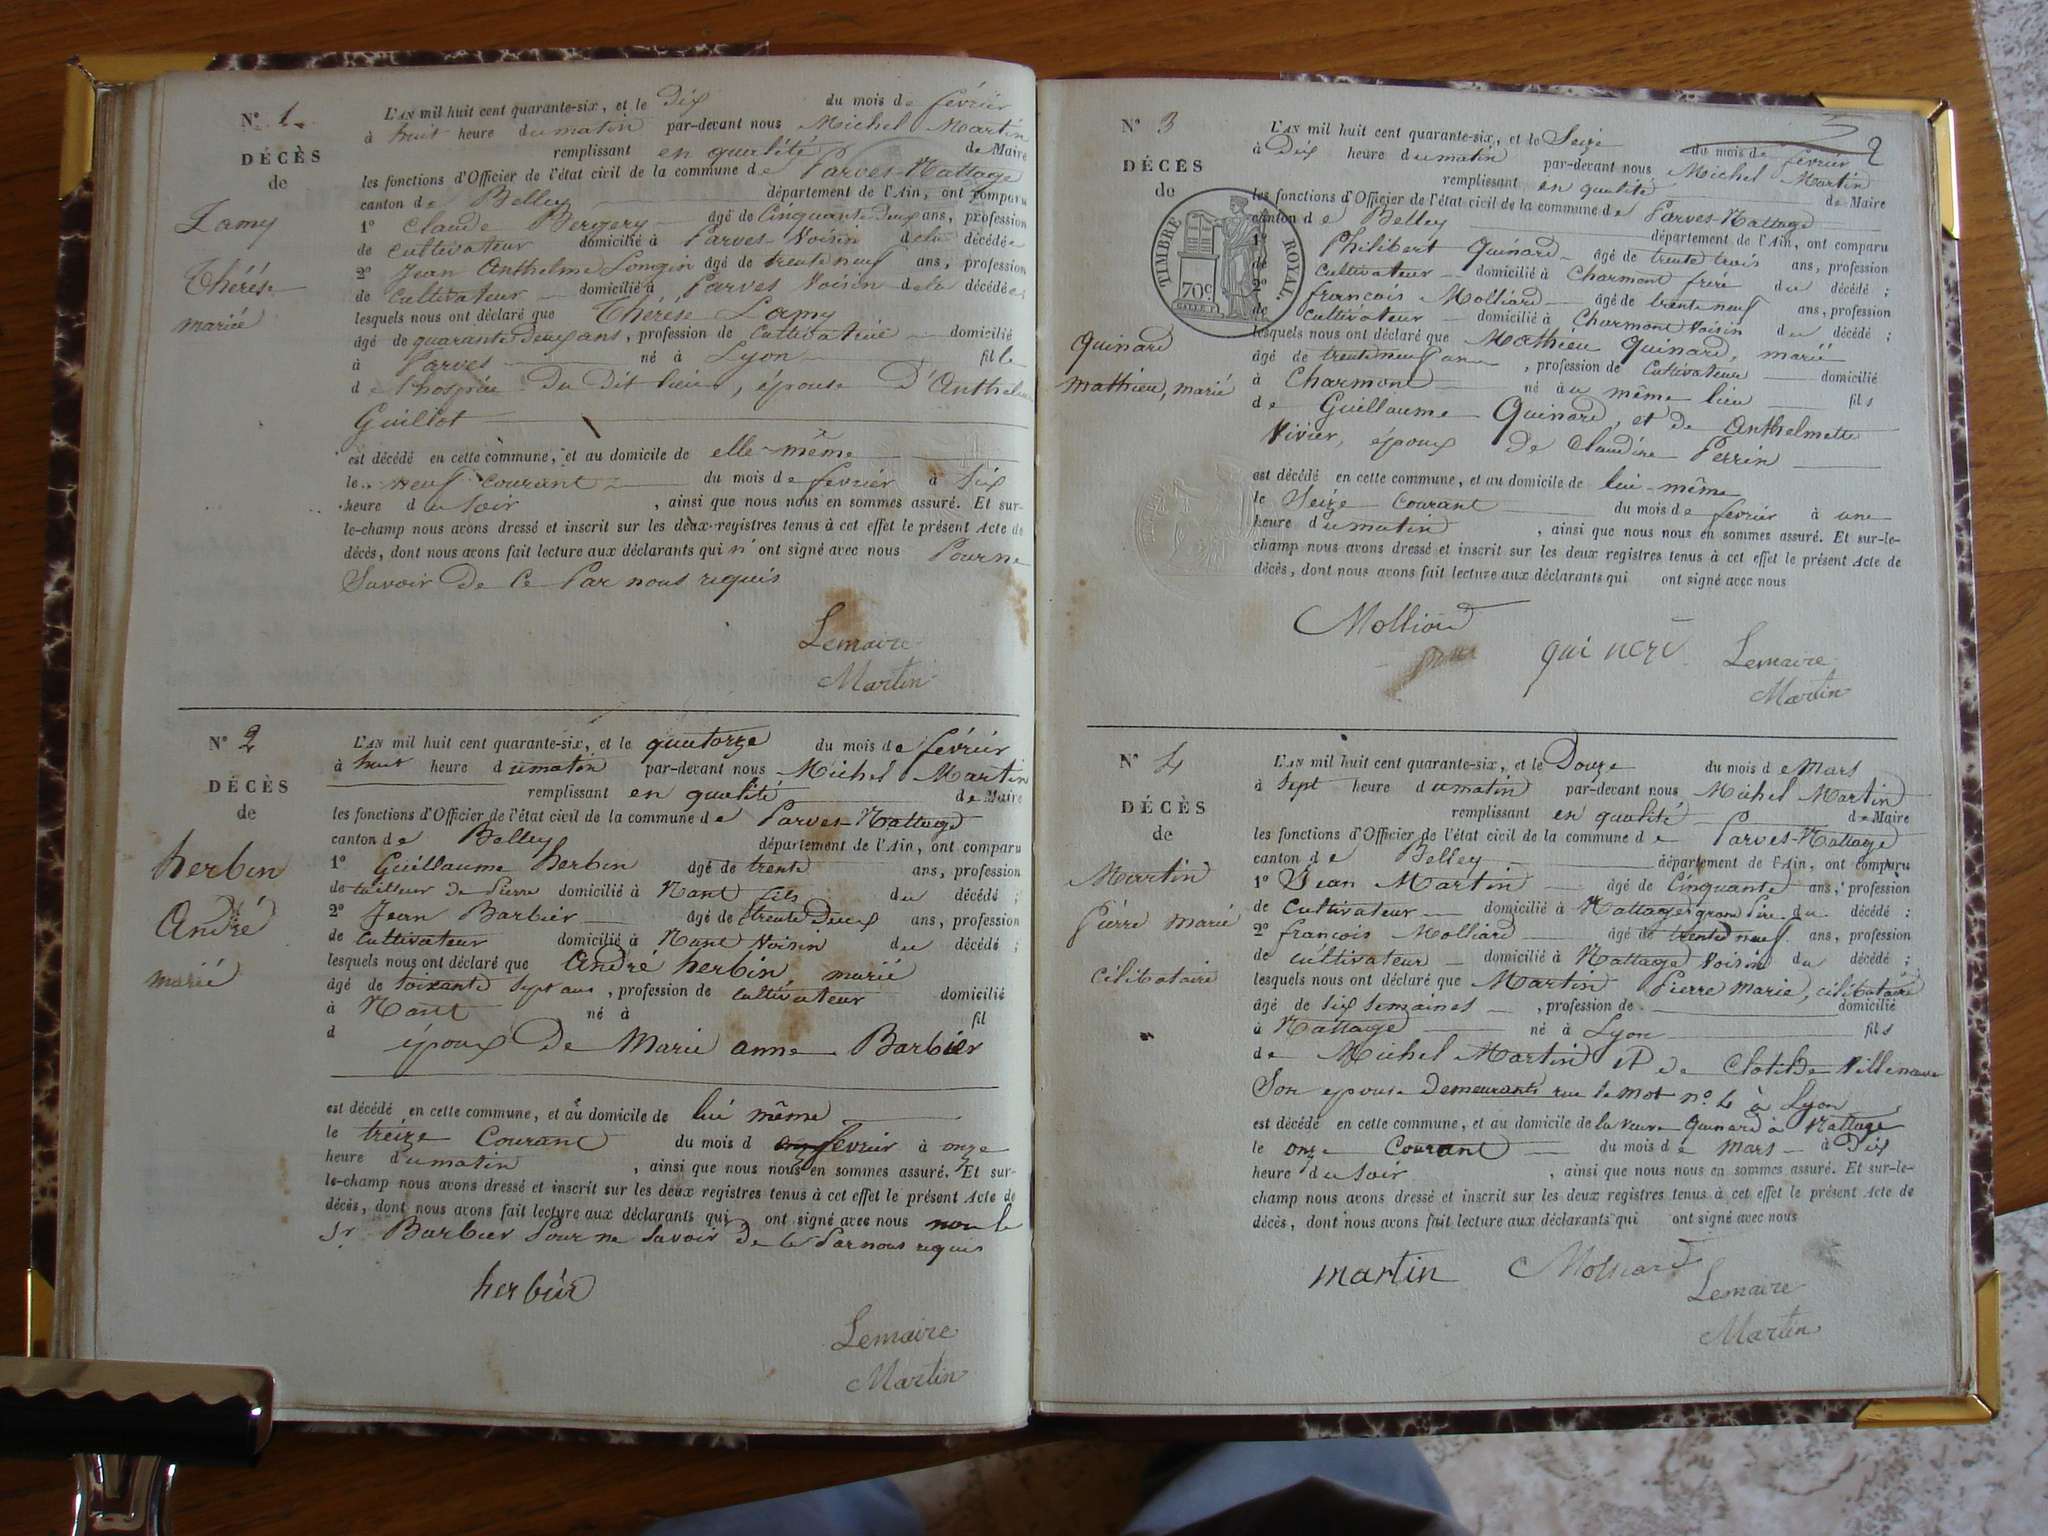 N° 1
DÉCÈS
de
Lamy
Thérèse
mariée
L'AN mil huit cent quarante-six, et le Dix du mois de février
à huit heure du matin par-devant nous Michel Martin
remplissant en qualité de Maire
les fonctions d'Officier de l'état civil de la commune de Parves-Nattage
canton de Belley département de l'Ain, ont comparu
1° Claude Bergery âgé de Cinquante Deux ans, profession
de cultivateur domicilié à Parves Voisin de la décédée
2° Jean Anthelme Longin âgé de trente neuf ans, profession
de cultivateur domicilié à Parves Voisin de la décédée
lesquels nous ont déclaré que Thérèse Lamy
âgé de quarante Deux ans, profession de Cultivatrice domicilié
à Parves né à Lyon fille
de l'hospice Du Dit lieu, épouse D'Anthelme
Guillot
est décédé en cette commune, et au domicile de elle-même
le neuf courant du mois de février à Six
heure du soir, ainsi que nous nous en sommes assuré. Et sur-
le-champ nous avons dressé et inscrit sur les deux registres tenus à cet effet le présent Acte de
décès, dont nous avons fait lecture aux déclarants qui n'ont signé avec nous Pour ne
Savoir De Ce Par nous requis
Lemaire
Martin
N° 2
DÉCÈS
de
herbin
André
marié
L'AN mil huit cent quarante-six, et le quatorze du mois de février
à huit heure du matin par-devant nous Michel Martin
remplissant en qualité de Maire
les fonctions d'Officier de l'état civil de la commune de Parves-Nattage
canton de Belley département de l'Ain, ont comparu
1° Guillaume herbin âgé de trente ans, profession
de tailleur de Pierre domicilié à Nant fils du décédé ;
2° Jean Barbier âgé de trente Deux ans, profession
de cultivateur domicilié à Nant Voisin du décédé ;
lesquels nous ont déclaré que André herbin, marié
âgé de soixante Sept ans, profession de cultivateur domicilié
à Nant né à fil
d époux De Marie anne Barbier
est décédé en cette commune, et au domicile de lui même
le treize Courant du mois d février à onze
heure du matin, ainsi que nous nous en sommes assuré. Et sur-
le-champ nous avons dressé et inscrit sur les deux registres tenus à cet effet le présent Acte de
décès, dont nous avons fait lecture aux déclarants qui ont signé avec nous non le
Sr Barbier Pour ne Savoir De Ce Par nous requis
herbin
Lemaire
Martin
2
N° 3
DÉCÈS
de
Quinard
mathieu, marié
TIMBRE ROYAL
70c
L'AN mil huit cent quarante-six, et le Seize du mois de février
à Dix heure du matin par-devant nous Michel Martin
remplissant en qualité de Maire
les fonctions d'Officier de l'état civil de la commune de Parves-Nattage
canton de Belley département de l'Ain, ont comparu
1° Philibert Quinard âgé de trente trois ans, profession
de cultivateur domicilié à Charmont frère du décédé ;
2° françois Molliard âgé de trente neuf ans, profession
de cultivateur domicilié à Charmont Voisin du décédé ;
lesquels nous ont déclaré que Mathieu Quinard, marié
âgé de trente neuf ans, profession de Cultivateur domicilié
à Charmont né au même lieu fils
de Guillaume Quinard, et de Anthelmette
Vivier, époux De Claudine Perrin
est décédé en cette commune, et au domicile de lui-même
le Seize courant du mois de février à une
heure du matin, ainsi que nous nous en sommes assuré. Et sur-le-
champ nous avons dressé et inscrit sur les deux registres tenus à cet effet le présent Acte de
décès, dont nous avons fait lecture aux déclarants qui ont signé avec nous
Molliard
Lemaire
Martin
N° 4
DÉCÈS
de
Martin
Pierre marie
célibataire
L'AN mil huit cent quarante-six, et le Douze du mois de Mars
à Sept heure du matin par-devant nous Michel Martin
remplissant en qualité de Maire
les fonctions d'Officier de l'état civil de la commune de Parves-Nattage
canton de Belley département de l'Ain, ont comparu
1° Jean Martin âgé de Cinquante ans, profession
de cultivateur domicilié à Nattage grand Père du décédé ;
2° françois Molliard âgé de trente neuf ans, profession
de cultivateur domicilié à Nattage Voisin du décédé ;
lesquels nous ont déclaré que Martin Pierre Marie, célibataire
âgé de six semaines, profession de domicilié
à Nattage né à Lyon fils
de Michel Martin et de Clotilde Villeneuve
Son épouse demeurants rue le mot n° 4 à Lyon
est décédé en cette commune, et au domicile de la veuve Quinard à Nattage
le onze Courant du mois de Mars à Dix
heure du soir, ainsi que nous nous en sommes assuré. Et sur-le-
champ nous avons dressé et inscrit sur les deux registres tenus à cet effet le présent Acte de
décès, dont nous avons fait lecture aux déclarants qui ont signé avec nous
martin Molliard
Lemaire
Martin